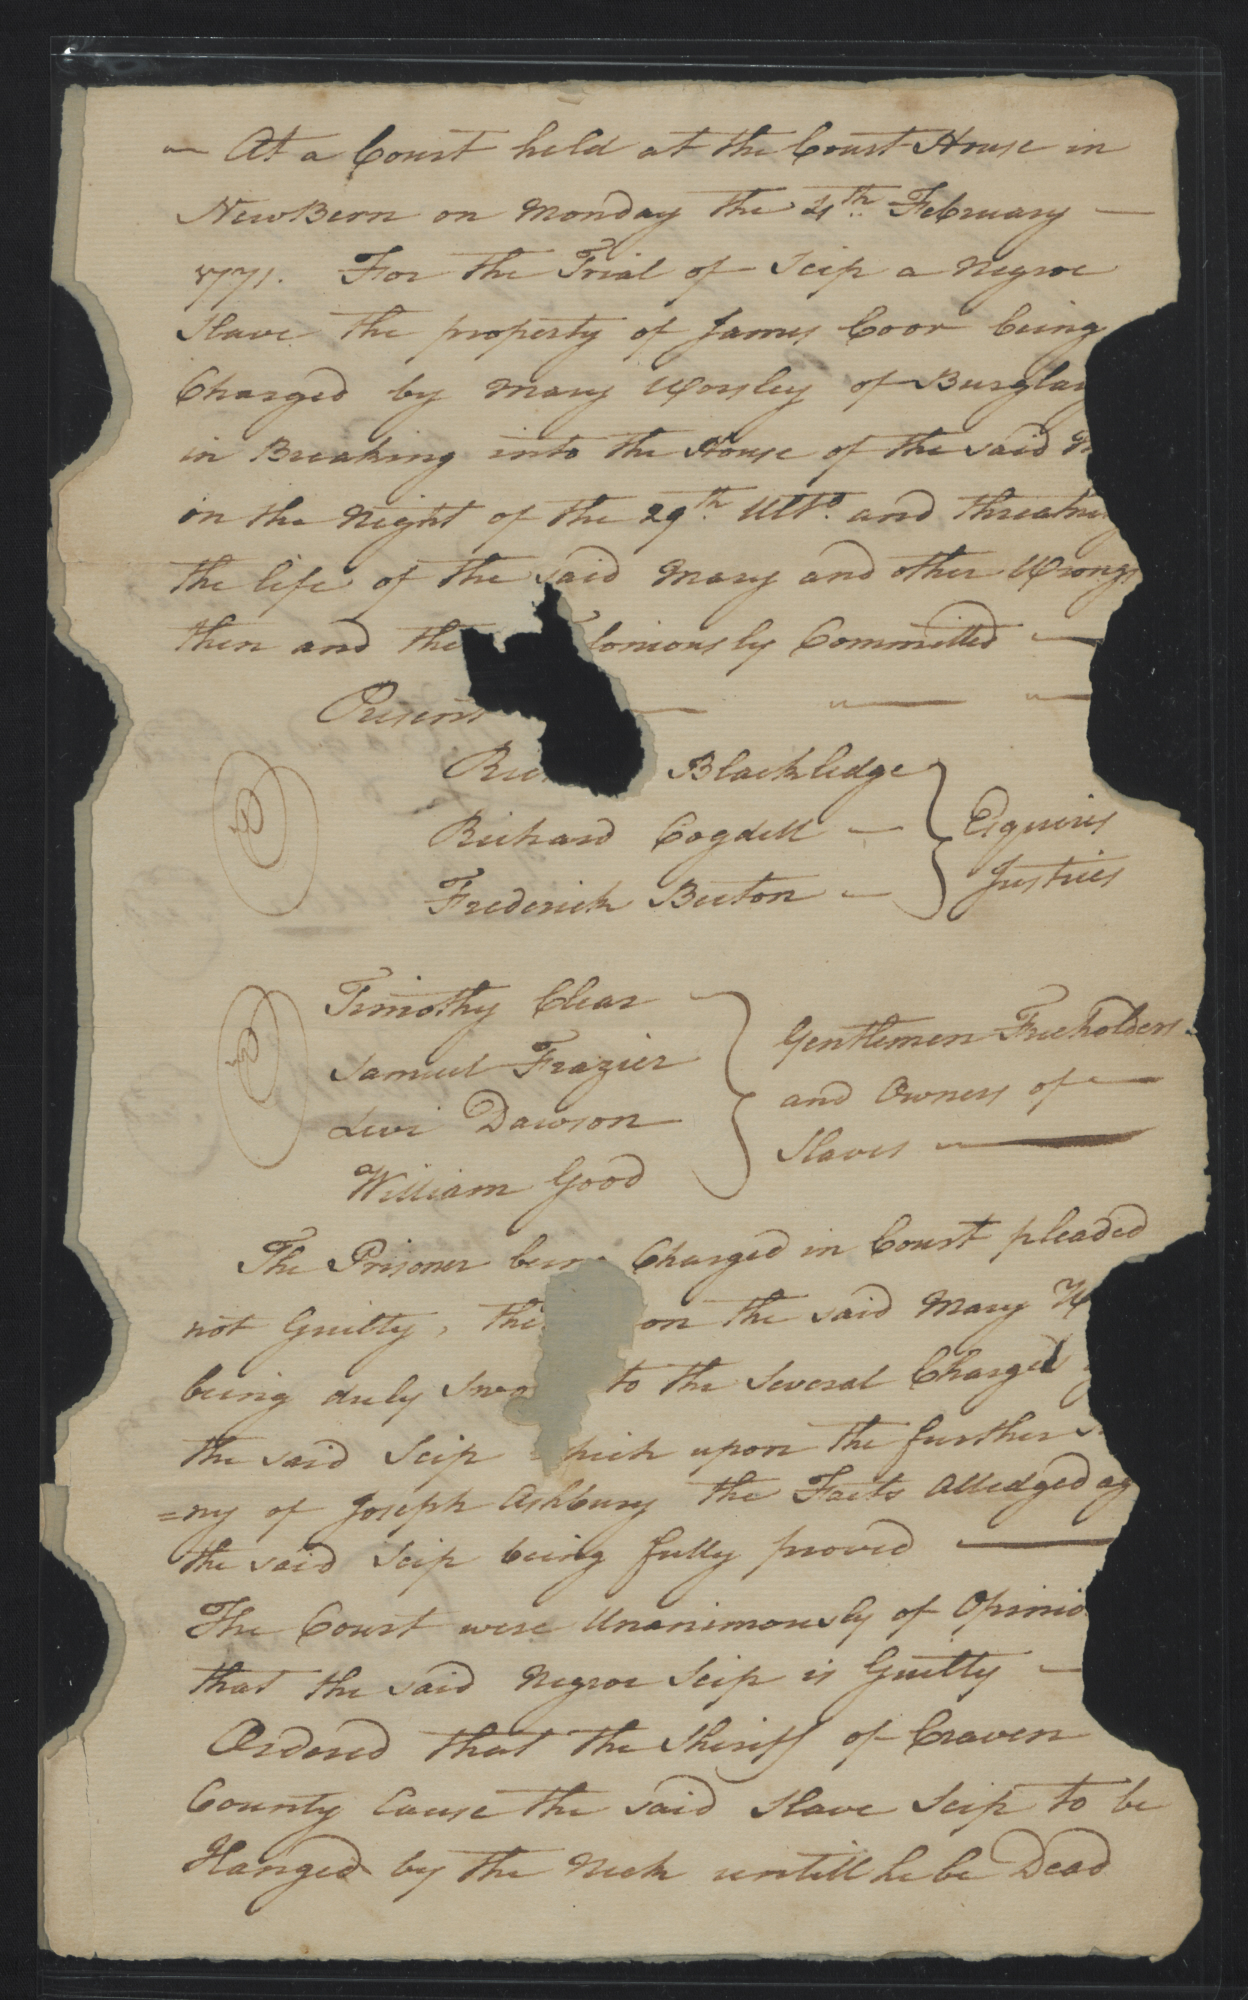 At a Court held at the Court House in
NewBern on Monday the 4th. February
1771. For the Trial of Scip a Negroe
Slave the property of James Coor being
Charged by Mary Worsley of Burglar
in Breaking into the House of the said
on the Night of the 29th. Ulto. and threatning
the life of the said Mary and other Wrongs
then and the loniously Committed
Present
Blackledge
Richard Cogdell
Frederick Becton
Esquires
Justices
Timothy Clear
Samuel Frazier
Levi Dawson
William Good
Gentlemen Freeholders
and Owners of
Slaves
The Prisoner being Charged in Court pleaded
not Guilty, on the said Mary
being duly to the Several Charges
the said Scip which upon the further
=ny of Joseph Ashbury the Facts Alledged ag
the said Scip being fully proved
The Court were Unanimously of Opinio
that the said Negroe Scip is Guilty
Ordered that the Sheriff of Craven
County Cause the said Slave Scip to be
Hanged by the Neck untill he be Dead